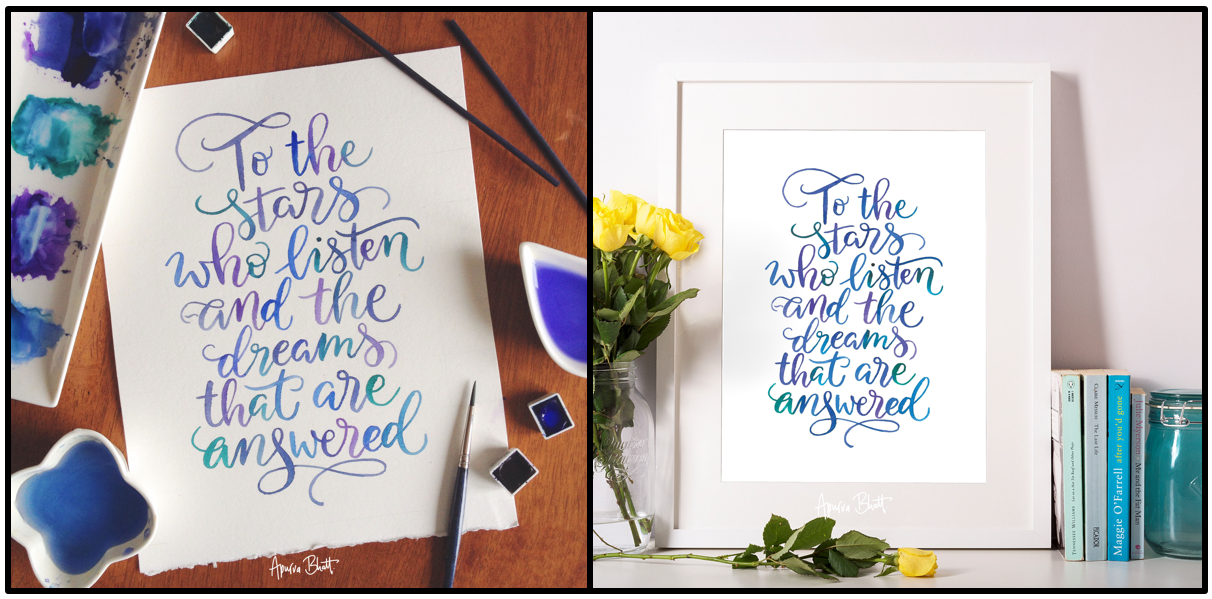 To the
stars
who listen
and the
dreams
that are
answered
Apurva Bhatt
To the
stars
who listen
and the
dreams
that are
answered
Apurva Bhatt
TENNESSEE WILLIAMS
PICADOR
Maggie O'Farrell after you'd gone
Julie Myerson Me and the Fat Man